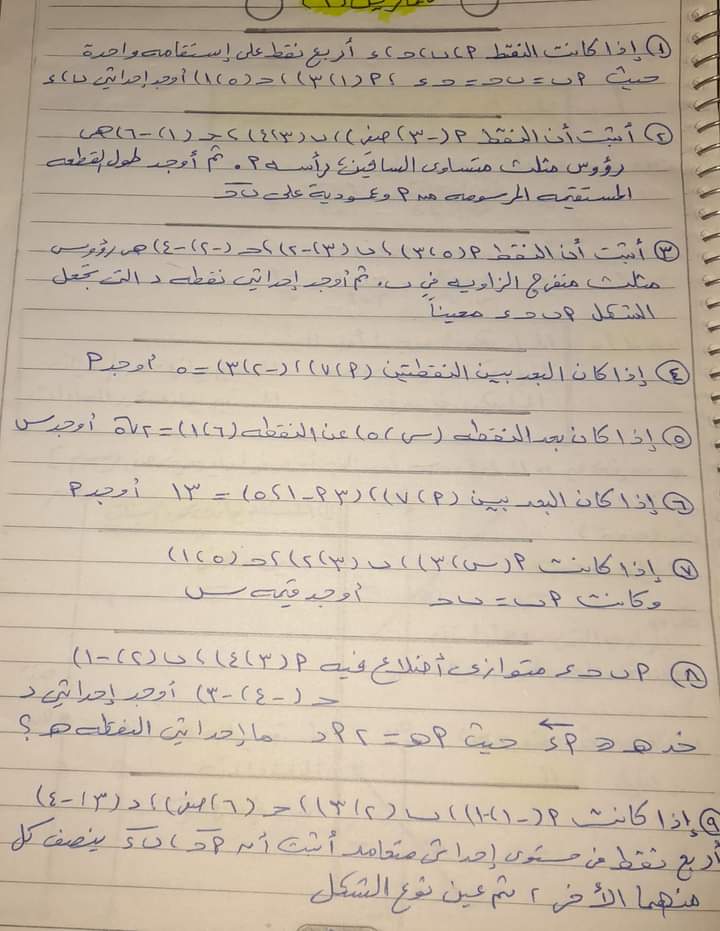 تمارين (١)
١ إذا كانت النقط P، ب، ح، ء أربع نقط على إستقامه واحدة
حيث Pب = بح = حء ، P(١، ٣)، ح(٥، ١) أوجد إحداثيى ب، ء
٢ أثبت أن النقط P(-٣، صفر)، ب(٣، ٤)، ح(١، -٦) هى
رؤوس مثلث متساوى الساقين رأسه P. ثم أوجد طول القطعه
المستقيمه المرسومه من P وعمودية على بح
٣ أثبت أن النقط P(٥، ٣)، ب(٣، -٢)، ح(-٢، -٤) هى رؤوس
مثلث منفرج الزاويه فى ب، ثم أوجد إحداثيى نقطه د التى تجعل
الشكل Pبحء معيناً
٤ إذا كان البعد بين النقطتين (P، ٧)، (-٢، ٣) = ٥ أوجد P
٥ إذا كان بعد النقطه (س، ٥) عن النقطه (٦، ١) = ٢√٥ أوجد س
٦ إذا كان البعد بين (P، ٧)، (٣P - ١، ٥-) = ١٣ أوجد P
٧ إذا كانت P(س، ٣)، ب(٣، ٢)، ح(٥، ١)
وكانت Pب = بح أوجد قيمه س
٨ Pبحء متوازى أضلاع فيه P(٣، ٤)، ب(٢، -١)
ح(-٤، -٣) أوجد إحداثيى د
خذ هـ ∈ Pء حيث Pهـ = ٢Pد ما إحداثيى النقطه هـ؟
٩ إذا كانت P(-١، -١)، ب(٢، ٣)، ح(٦، صفر)، د(٣، -٤)
أربع نقط فى مستوى إحداثى متعامد أثبت أن Pح، بء ينصف كل
منهما الأخر، ثم عين نوع الشكل